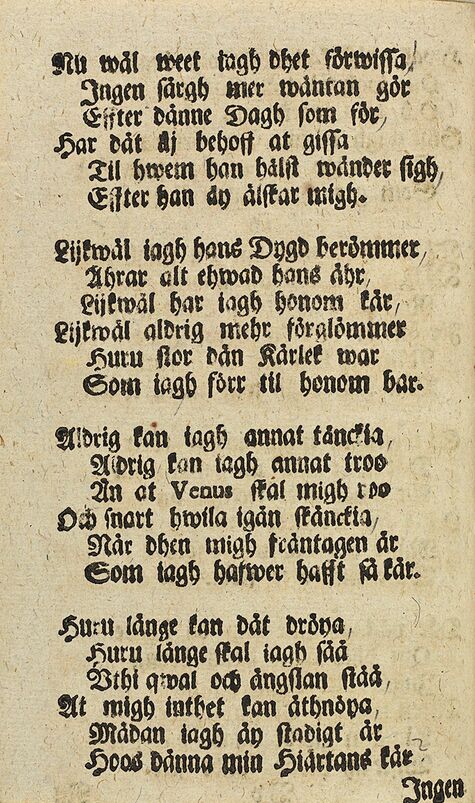 Nu wäl weet iagh dhet förwissa,
Ingen särgh mer wäntan gör
Effter dänne Dagh som för,
Har dät äj behoff at gissa
Til hwem han hälst wänder sigh,
Effter han äy älskar migh.
Lijkwäl iagh hans Dygd berömmer,
Ährar alt ehwad hans ähr,
Lijkwäl har iagh honom kär,
Lijkwäl aldrig mehr förglömmer
Huru stor dän Kärlek war
Som iagh förr til honom bar.
Aldrig kan iagh annat tänckia,
Aldrig kan iagh annat troo
Än at Venus skal migh roo
Och snart hwila igän skänckia,
När dhen migh fräntagen är
Som iagh hafwer hafft så kär.
Huru länge kan dät dröya,
Huru länge skal iagh såå
Vthi qwal och ängslan ståå,
At migh inthet kan åthnöya,
Mädan iagh äy stadigt är
Hoos dänna min Hiärtans kär
Ingen